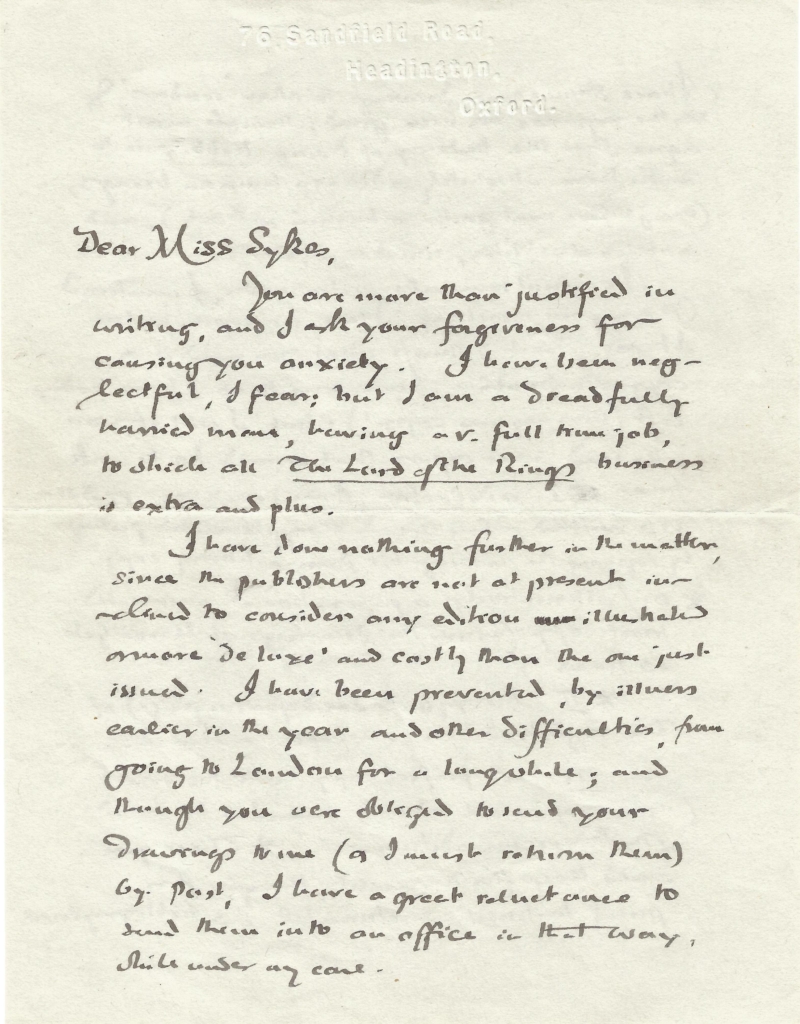 76, Sandfield Road,
Headington,
Oxford.
Dear Miss Sykes,
You are more than justified in
writing, and I ask your forgiveness for
causing you anxiety. I have been neg-
lectful, I fear; but I am a dreadfully
harried man, having a v. full time job,
to which all The Lord of the Rings business
is extra and plus.
I have done nothing further in the matter,
since the publishers are not at present in-
-clined to consider any edition illustrated
or more 'de luxe' and costly than the one just
issued. I have been prevented, by illness
earlier in the year and other difficulties, from
going to London for a long while; and
though you were obliged to send your
drawings to me (as I must return them)
by post, I have a great reluctance to
send them into an office in that way,
while under my care.